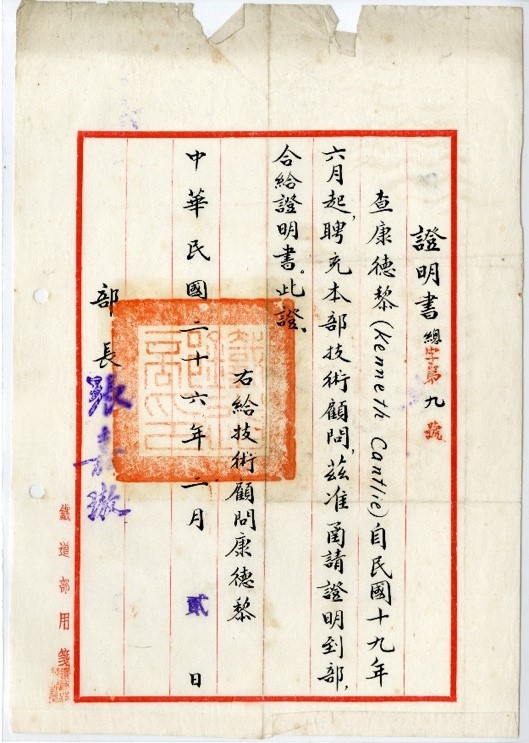 證明書 總字第九號
查康德黎(Kenneth Cantlie)自民國十九年
六月起,聘充本部技術顧問,茲准函請證明到部,
合給證明書。此證。
右給技術顧問康德黎
中華民國二十六年二月 貳 日
部長 張嘉璈
鐵道部用箋